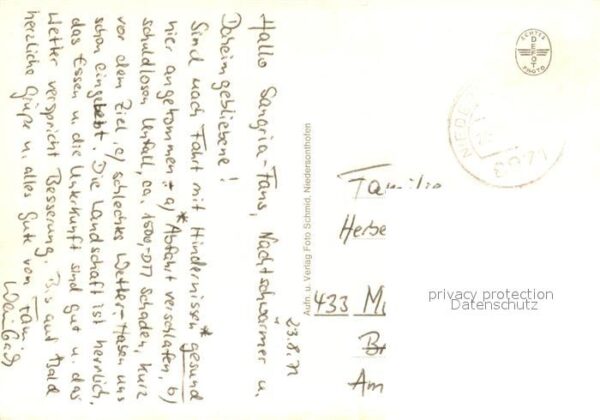 23.8.72
Hallo Sangria-Fans, Nachtschwärmer u.
Daheimgebliebene!
Sind nach Fahrt mit Hindernissen* gesund
hier angekommen. *a) Abfahrt verschlafen, b)
schuldlosen Unfall, ca. 1500,-DM Schaden, kurz
vor dem Ziel c) schlechtes Wetter. Haben uns
schon eingelebt. Die Landschaft ist herrlich,
das Essen u. die Unterkunft sind gut u. das
Wetter verspricht Besserung. Bis auf Bald
herzliche Grüße u. alles Gute von Fam.
Aufn. u. Verlag Foto Schmid, Niedersonthofen
ECHTES
DEFOT
PHOTO
NIEDE
Familie
Herbe
433 M
Am
privacy protection
Datenschutz